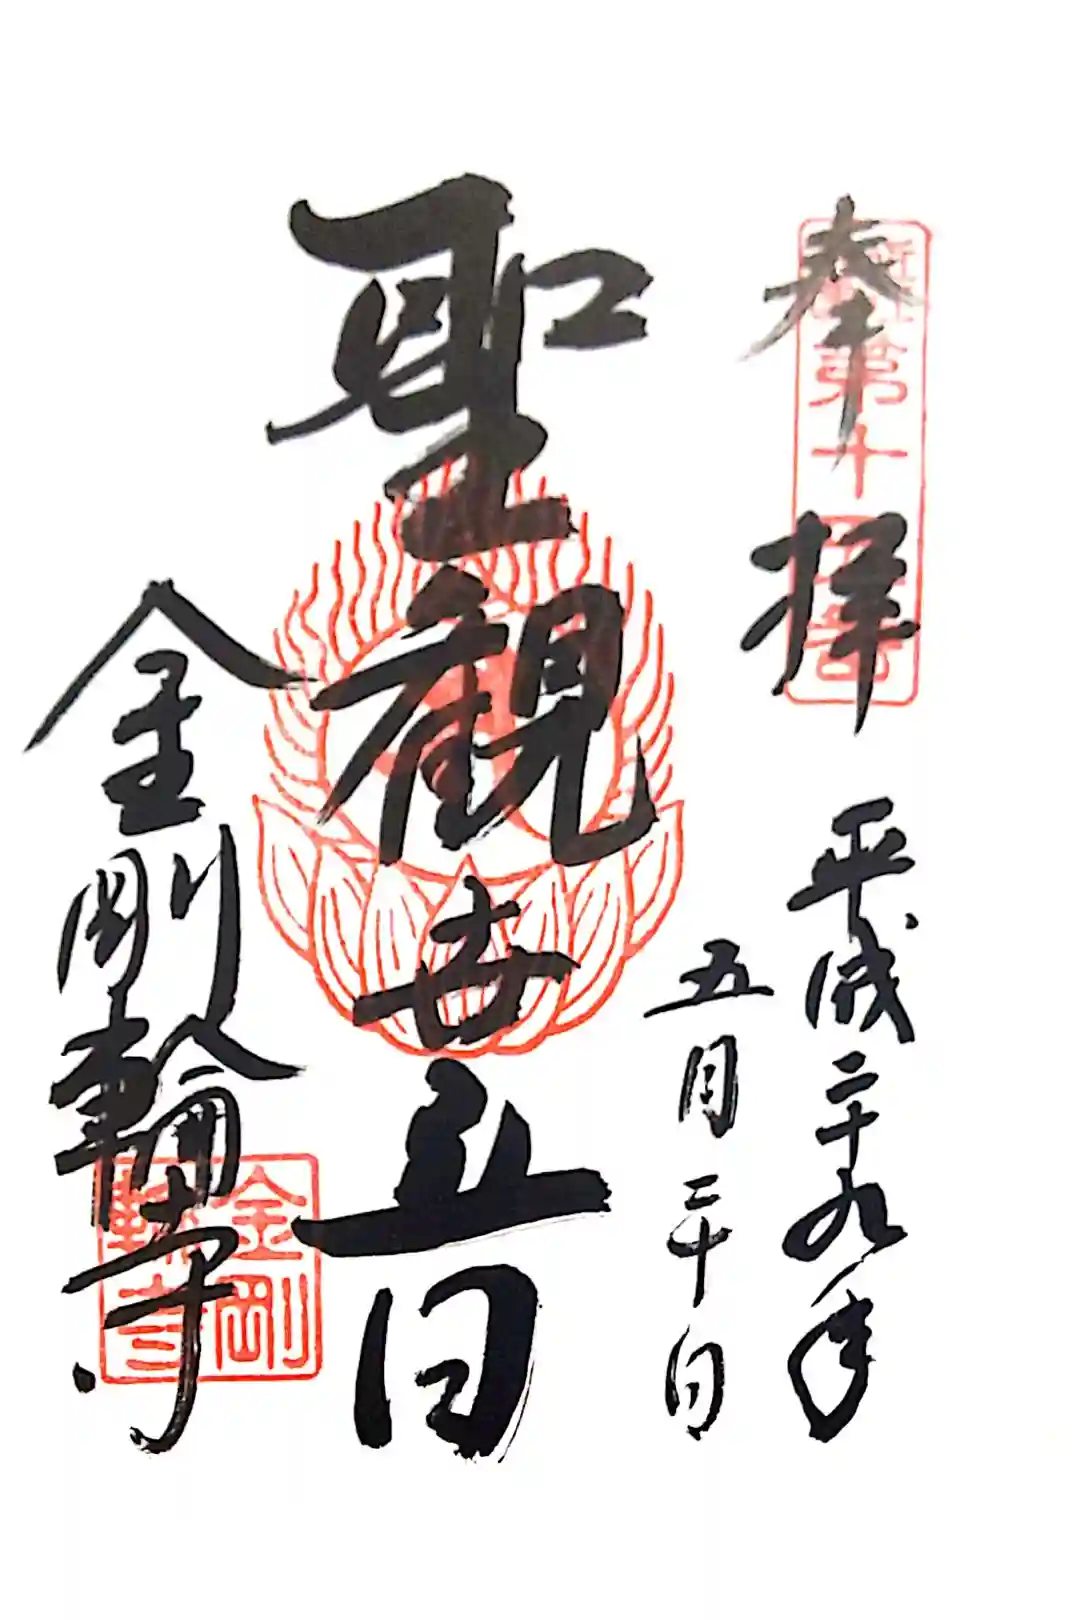 奉拝
平成二十九年
五月二十日
聖観世音
金剛輪寺
金剛
輪寺